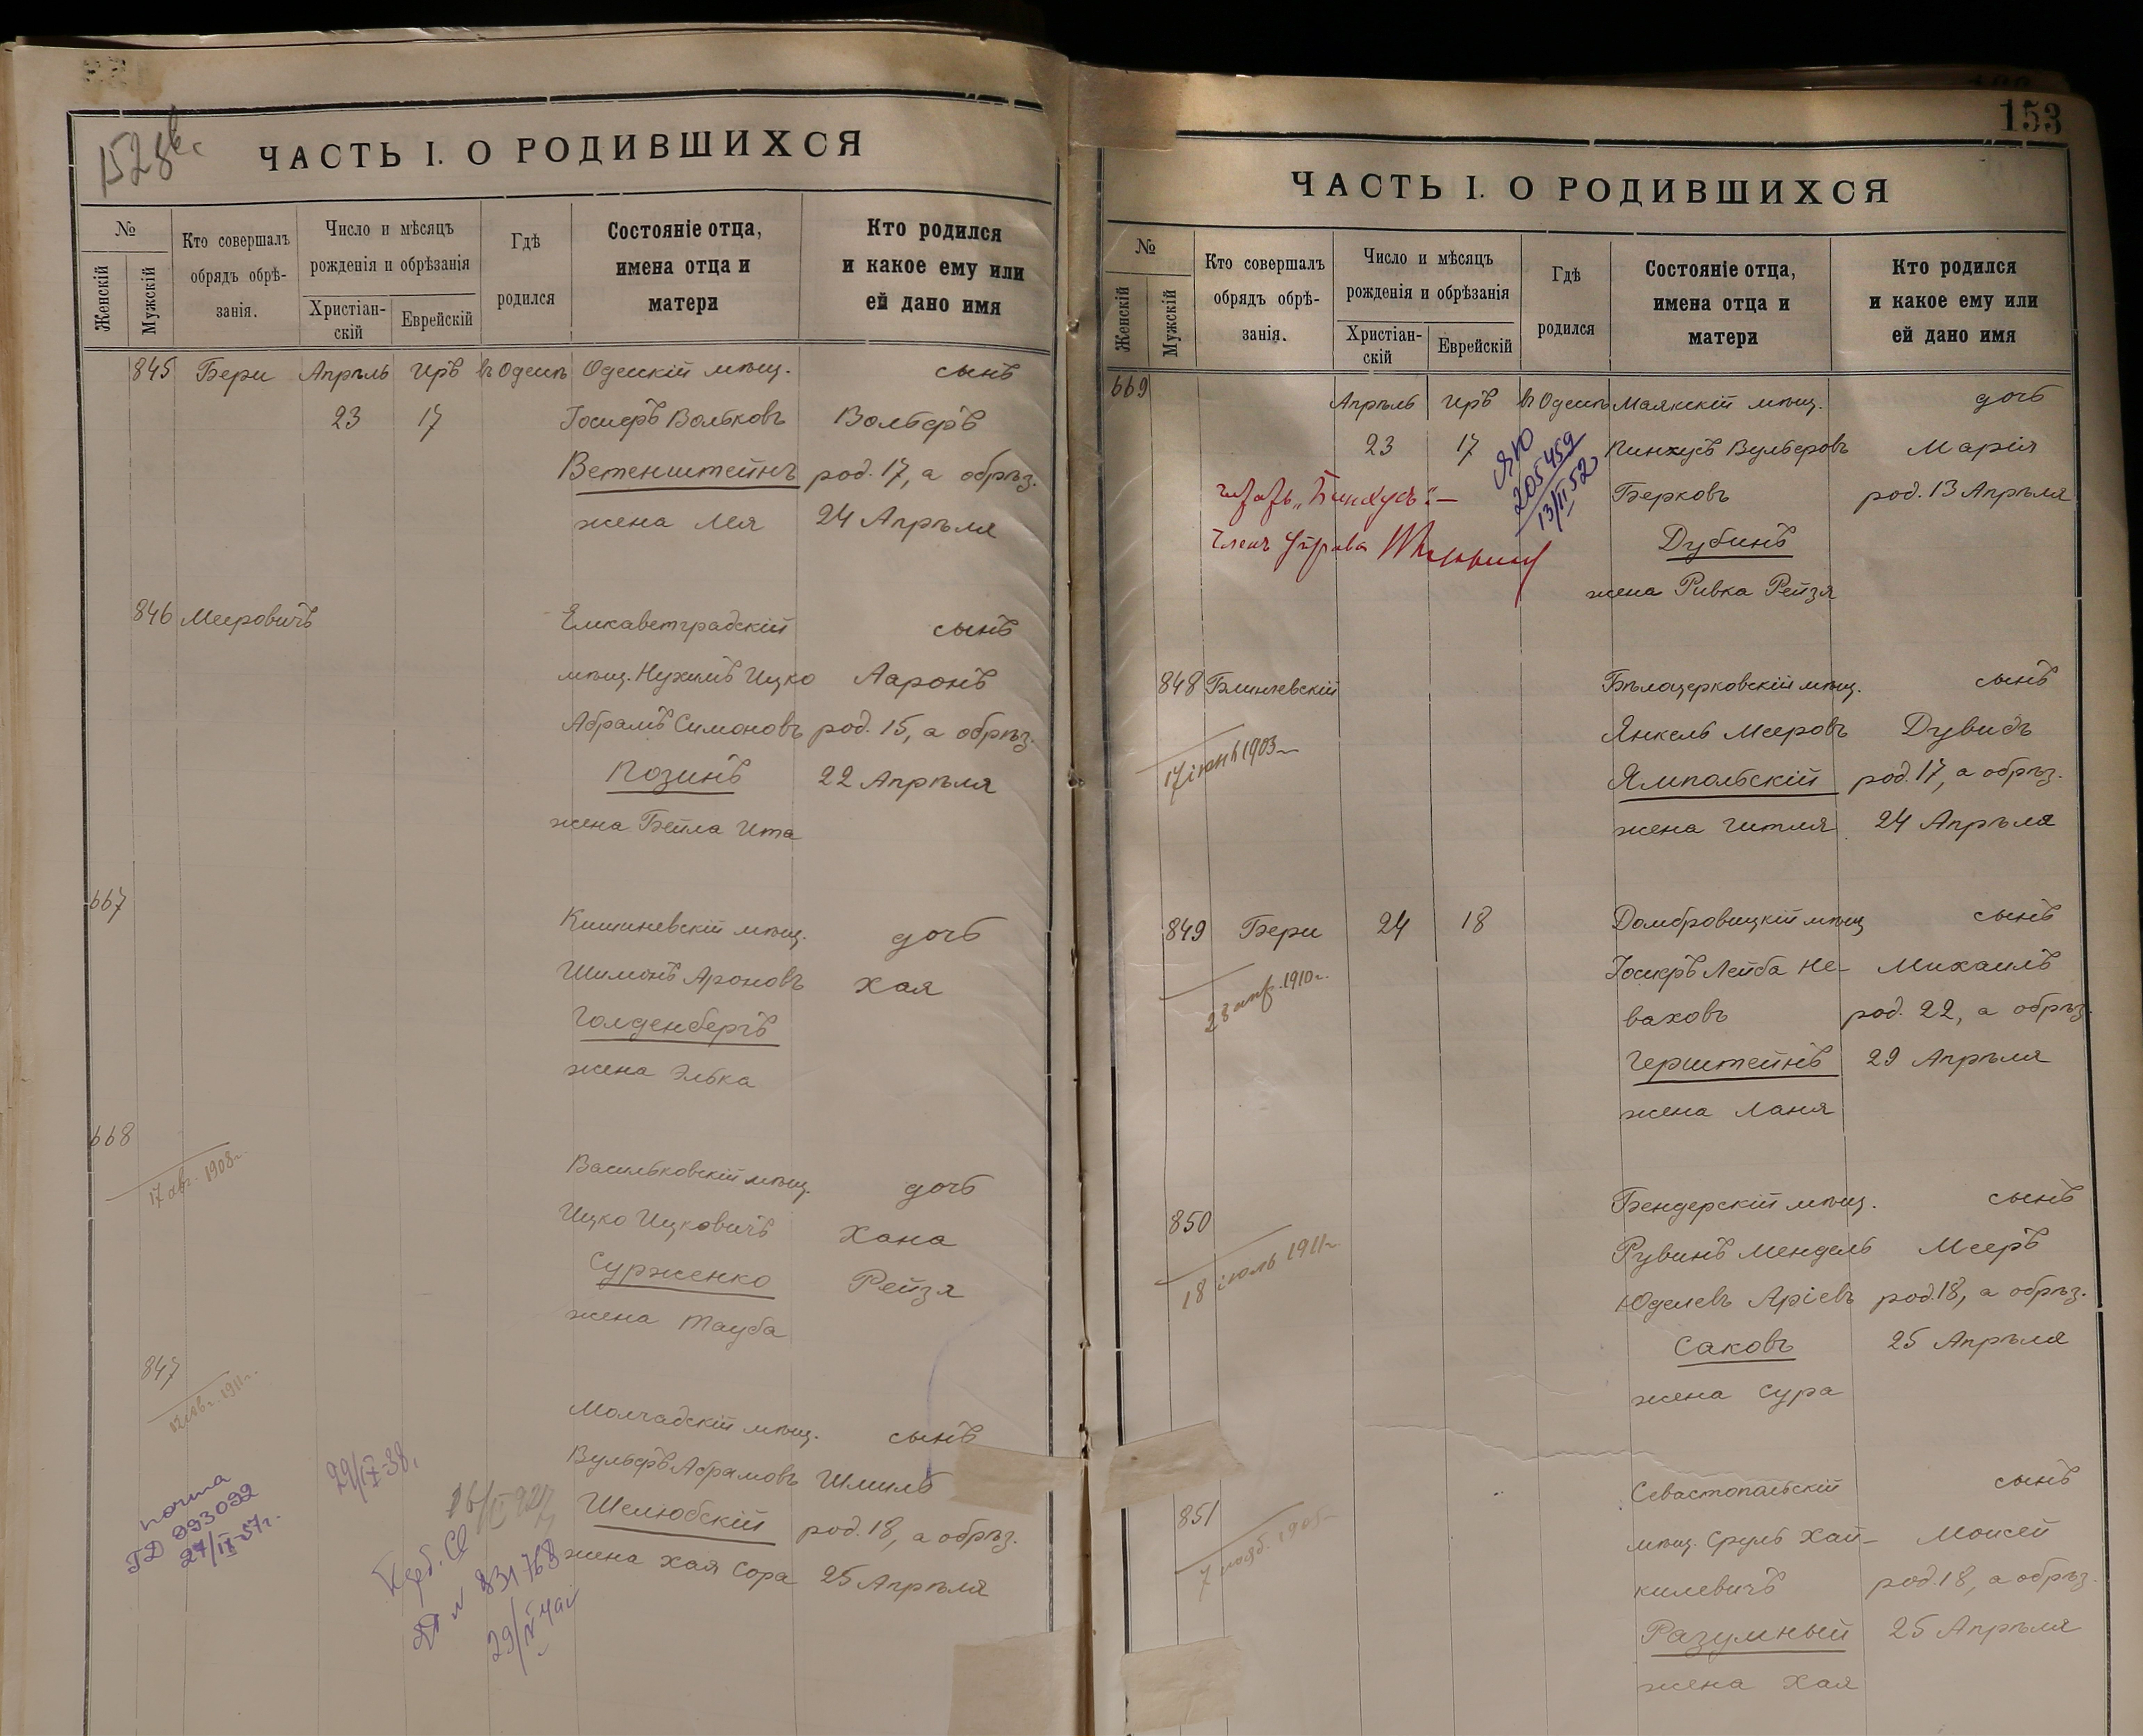 152об.
ЧАСТЬ I. О РОДИВШИХСЯ
№
Женскій
Мужскій
Кто совершалъ
обрядъ обрѣ-
занія.
Число и мѣсяцъ
рожденія и обрѣзанія
Христіан-
скій
Еврейскій
Гдѣ
родился
Состояніе отца,
имена отца и
матери
Кто родился
и какое ему или
ей дано имя
845 Бери Апрѣль Иръ въ Одессѣ Одесскій мѣщ. сынъ
23 17 Іосифъ Вольковъ Вольфъ
Ветенштейнъ род. 17, а обрѣз.
жена Лея 24 Апрѣля
846 Меировичъ Елисаветградскій сынъ
мѣщ. Нухимъ Ицко Ааронъ
Абрамъ Симоновъ род. 15, а обрѣз.
Позинъ 22 Апрѣля
жена Бейла Ита
667
Кишиневскій мѣщ. дочь
Шимонъ Ароновъ Хая
Голденбергъ
жена Элька
668
17 авг. 1908 г.
Васильковскій мѣщ. дочь
Ицко Ицковичъ Хана
Сурженко Рейзя
жена Тауба
847
1911 г.
Молчадскій мѣщ. сынъ
Вульфъ Абрамовъ Шмиль
Шелюбскій род. 18, а обрѣз.
жена Хая Сора 25 Апрѣля
почта
ГД 093092
27/IX-57г.
29/IX-38.
831768
153
ЧАСТЬ I. О РОДИВШИХСЯ
№
Женскій
Мужскій
Кто совершалъ
обрядъ обрѣ-
занія.
Число и мѣсяцъ
рожденія и обрѣзанія
Христіан-
скій
Еврейскій
Гдѣ
родился
Состояніе отца,
имена отца и
матери
Кто родился
и какое ему или
ей дано имя
669 Апрѣль Иръ въ Одессѣ Маякскій мѣщ. дочь
23 17 Пинхусъ Вульфовъ Марія
Берковъ род. 13 Апрѣля
Дубинъ
жена Ривка Рейзя
ЯЮ
205459
13/II 52
читать „Пинхусъ".—
Членъ Управы
848 Блинчевскій Бѣлоцерковскій мѣщ. сынъ
Янкель Мееровъ Дувидъ
17 іюнь 1903
Ямпольскій род. 17, а обрѣз.
жена Гитля 24 Апрѣля
849 Бери 24 18 Домбровицкій мѣщ сынъ
Іосифъ Лейба Не- Михаилъ
23 апр. 1910 г.
ваховъ род. 22, а обрѣз.
Герштейнъ 29 Апрѣля
жена Ланя
850 Бендерскій мѣщ. сынъ
Рувинъ Мендель Мееръ
18 іюль 1911 г.
Юделевъ Аріевъ род. 18, а обрѣз.
Саковъ 25 Апрѣля
жена Сура
851 Севастопольскій сынъ
мѣщ. Сруль Хай- Моисей
7 нояб. 1905
килевичъ род. 18, а обрѣз.
Разумный 25 Апрѣля
жена Хая